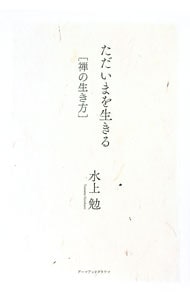 ただいまを生きる
[禅の生き方]
水上 勉